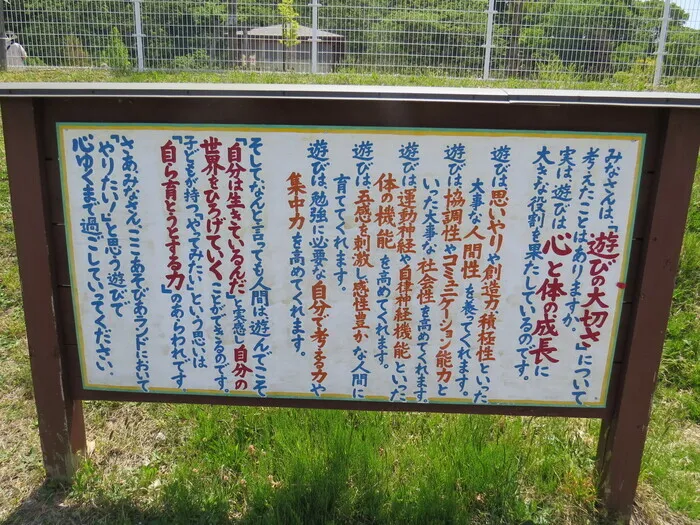 みなさんは、「遊びの大切さ」について
考えたことはありますか。
実は、遊びは、心と体の成長に
大きな役割を果たしているのです。
遊びは、思いやりや創造力・積極性といった
大事な人間性を養ってくれます。
遊びは、協調性・コミュニケーション能力と
いった大事な社会性を高めてくれます。
遊びは、運動神経や自律神経機能といった
体の機能を高めてくれます。
遊びは、五感を刺激し感性豊かな人間に
育ててくれます。
遊びは、勉強に必要な自分で考える力や
集中力を高めてくれます。
そして、なんと言っても人間は、遊んでこそ
「自分は生きているんだ」と実感し、自分の
世界をひろげていくことができるのです。
子どもが持つ「やってみたい」という思いは
「自ら育とうとする力」のあらわれです。
さあ、みなさん、ここあそびあランドにおいて、
「やりたい！」と思う遊びで
心ゆくまで過ごしていってください。